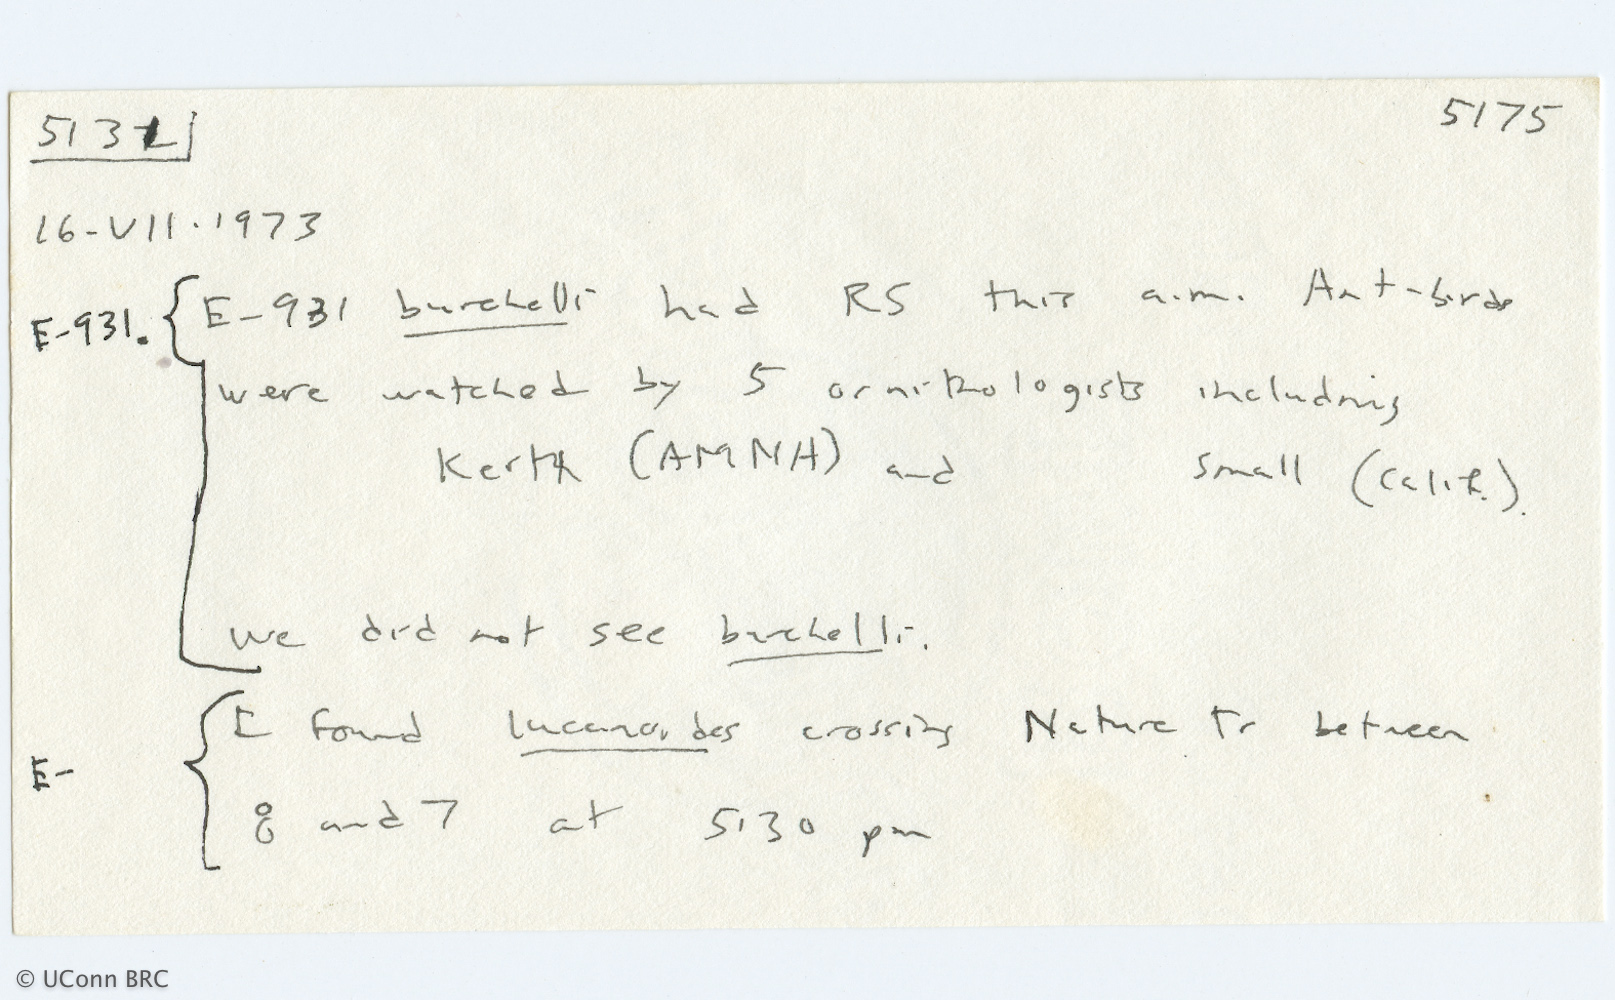 5132
5175
16-VII.1973
E-931. E-931 burchelli had RS this a.m. Ant-birds
were watched by 5 ornithologists including
Keith (AMNH) and Small (Calif.).
we did not see burchelli.
I found lucanoides crossing Nature Tr between
E-
8 and 7 at 5:30 pm
© UConn BRC